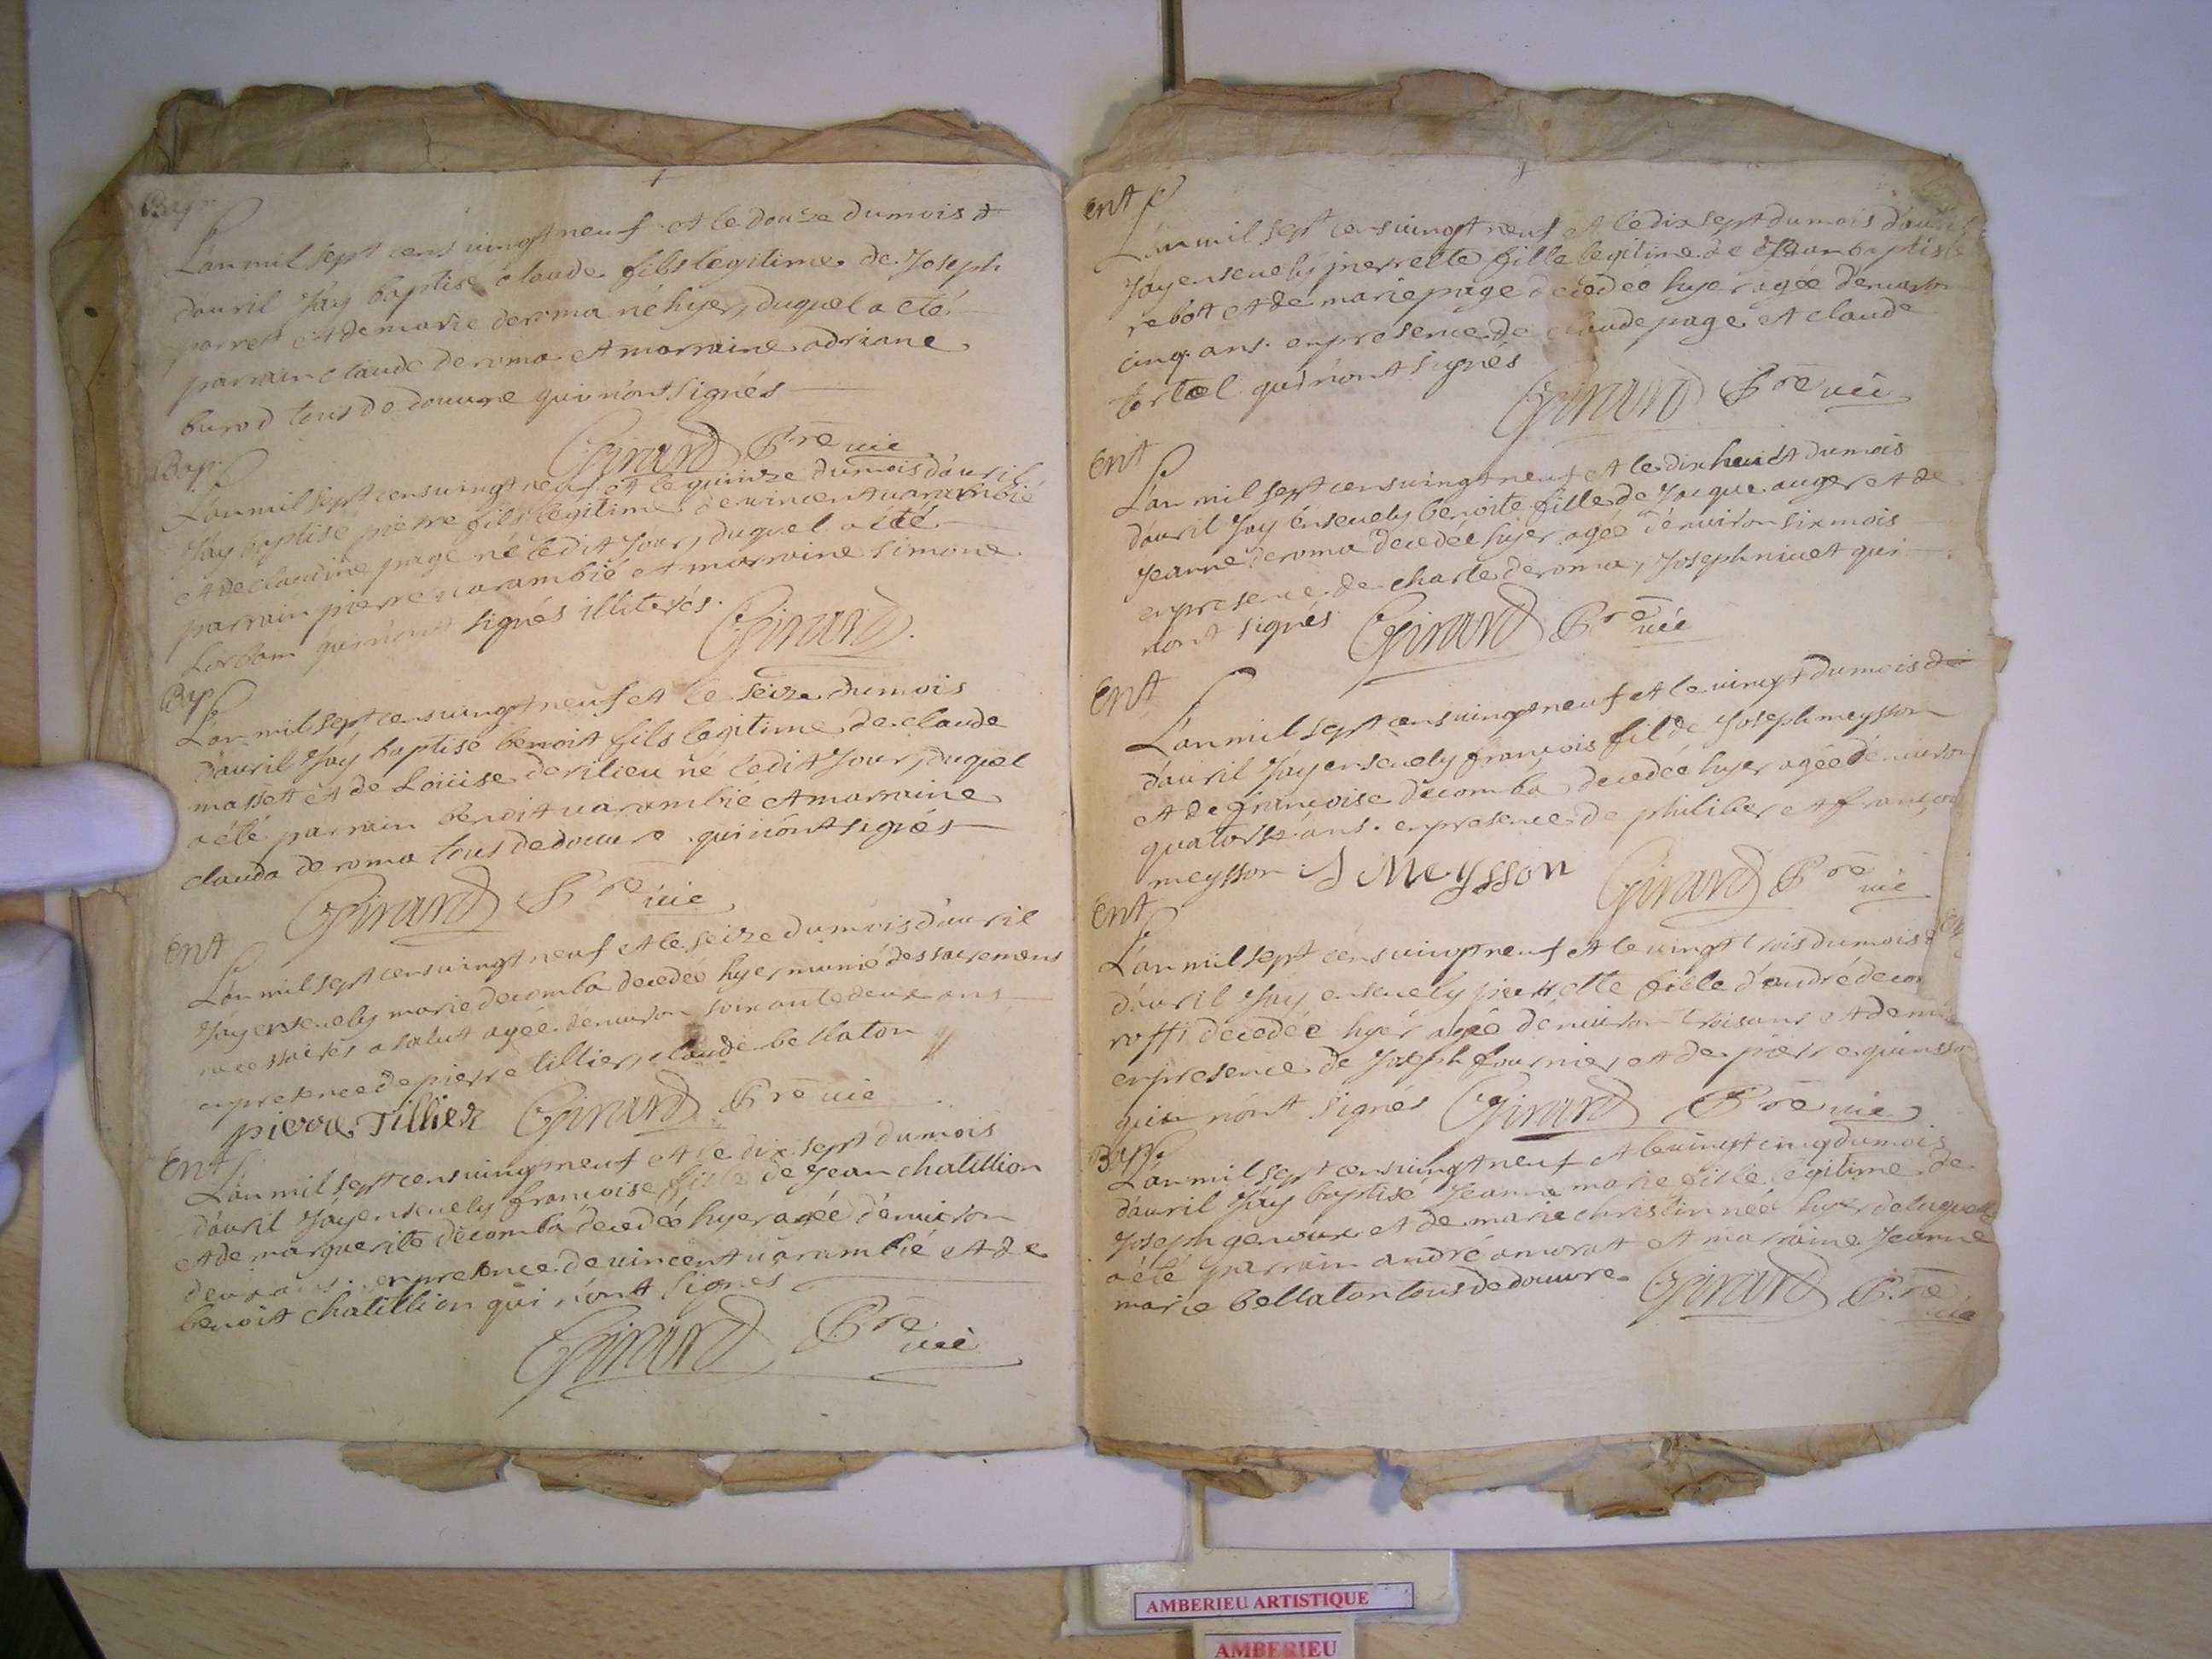 Bap
L'an mil sept cens vingt neuf et le douze du mois
d'avril j'ay baptisé claude fils legitime de Joseph
et de marie deroma né hyer, duquel a eté
parrain claude deroma et marraine adriane
burod tous de douvre qui n'ont signés
Girard Pre vic
Bap
L'an mil sept cens vingt neuf et le quinze du mois d'avril
j'ay baptisé pierre fils légitime de vincent varambié
et de claudine page né ledit jour, duquel a été
parrain pierre varambié et marraine simone
qui n'ont signés illiterés. Girard
Bap
L'an mil sept cens vingt neuf et le seize du mois
d'avril j'ay baptisé benoit fils légitime de claude
massett et de Loüise derilieu né ledit jour, duquel
a été parrain benoit varambié et marraine
clauda deroma tous de douvre qui n'ont signés
Girard Pre vic
Ent
L'an mil sept cens vingt neuf et le seize du mois d'avril
j'ay ensevely marie decomba decedée hyer munie des sacremens
necessaires a salut agée d'environ soixante deux ans
en presence de pierre tillier, claude bellaton
pierre Tillier Girard Pre vic
Ent
L'an mil sept cens vingt neuf et le dix sept du mois
d'avril j'ay ensevely françoise fille de jean chatillion
et de marguerite decomba decedée hyer agée d'environ
deux ans. en presence de vincent varambié et de
benoit chatillion qui n'ont signes
Girard Pre vic
Ent
L'an mil sept cens vingt neuf et le dix sept du mois d'avril
j'ay ensevely pierrette fille legitime de Jean baptiste
rebott et de marie page decedée hyer agée d'environ
cinq ans. en presence de claude page et claude
tortel qui n'ont signés
Girard Pre vic
Ent
L'an mil sept cens vingt neuf et le dix huict du mois
d'avril j'ay ensevely benoite fille de jacque auger et de
jeanne deroma decedée hyer agée d'environ six mois
en presence de charle deroma, Joseph nivet qui
n'ont signés Girard Pre vic
Ent
L'an mil sept cens vingt neuf et le vingt du mois
d'avril j'ay ensevely françois fil de Joseph meysson
et de françoise decomba decedée hyer agée d'environ
quatorse ans. en presence de philiber et françoi
meysson J Meysson Girard Pre vic
Ent
L'an mil sept cens vingt neuf et le vingt trois du mois
d'avril j'ay ensevely pierrette fille d'andré
roffi decedée hyer agée d'environ trois ans et demi
en presence de Joseph fournier et de pierre
qui n'ont signés Girard Pre vic
Bap
L'an mil sept cens vingt neuf et le vingt cinq du mois
d'avril j'ay baptisé jeanne marie fille légitime de
joseph genoux et de marie christin née hyer de laquelle
a été parrain andré amorat et marraine jeanne
marie bellaton tous de douvre Girard Pre vic
AMBERIEU ARTISTIQUE
AMBERIEU